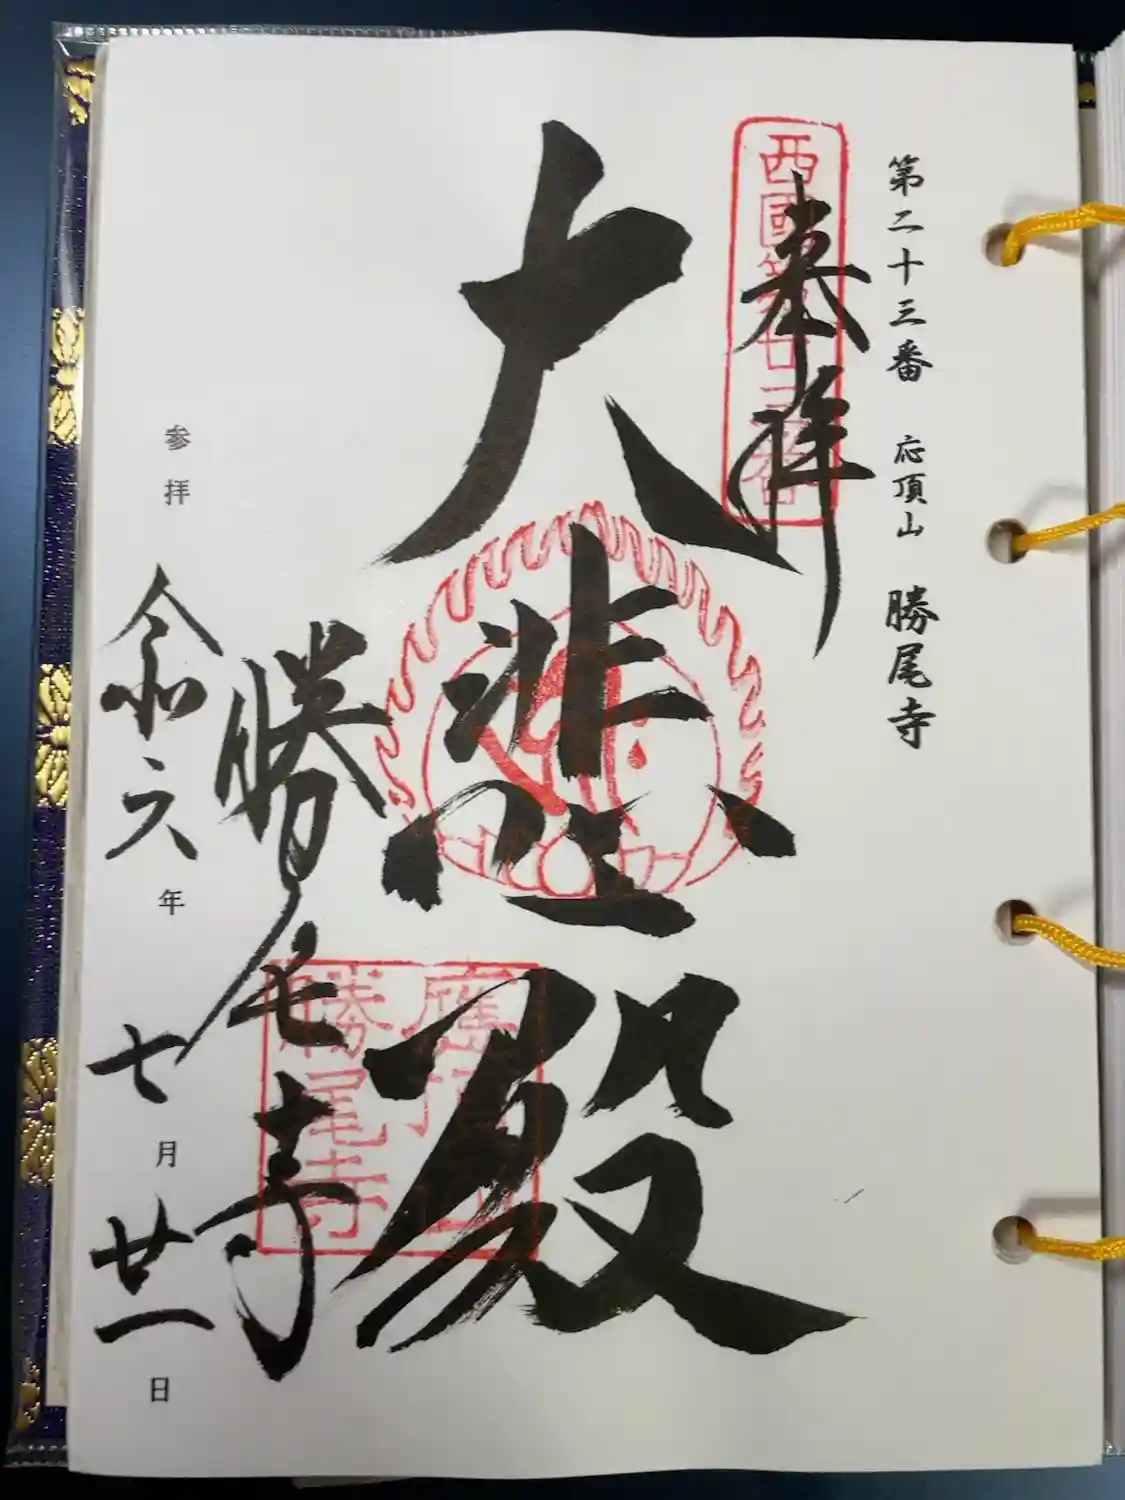 第二十三番 応頂山 勝尾寺
奉拝
西國第廿三番
大悲殿
應頂山
勝尾寺
勝尾寺
参拝 令和六年 七月 廿一日